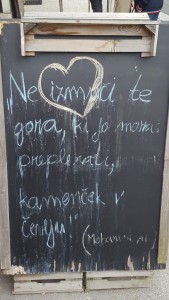 "Ne izmuči te
gora, ki jo moraš
preplezati,
kamenček v
čevlju"
(Mohamed Ali)